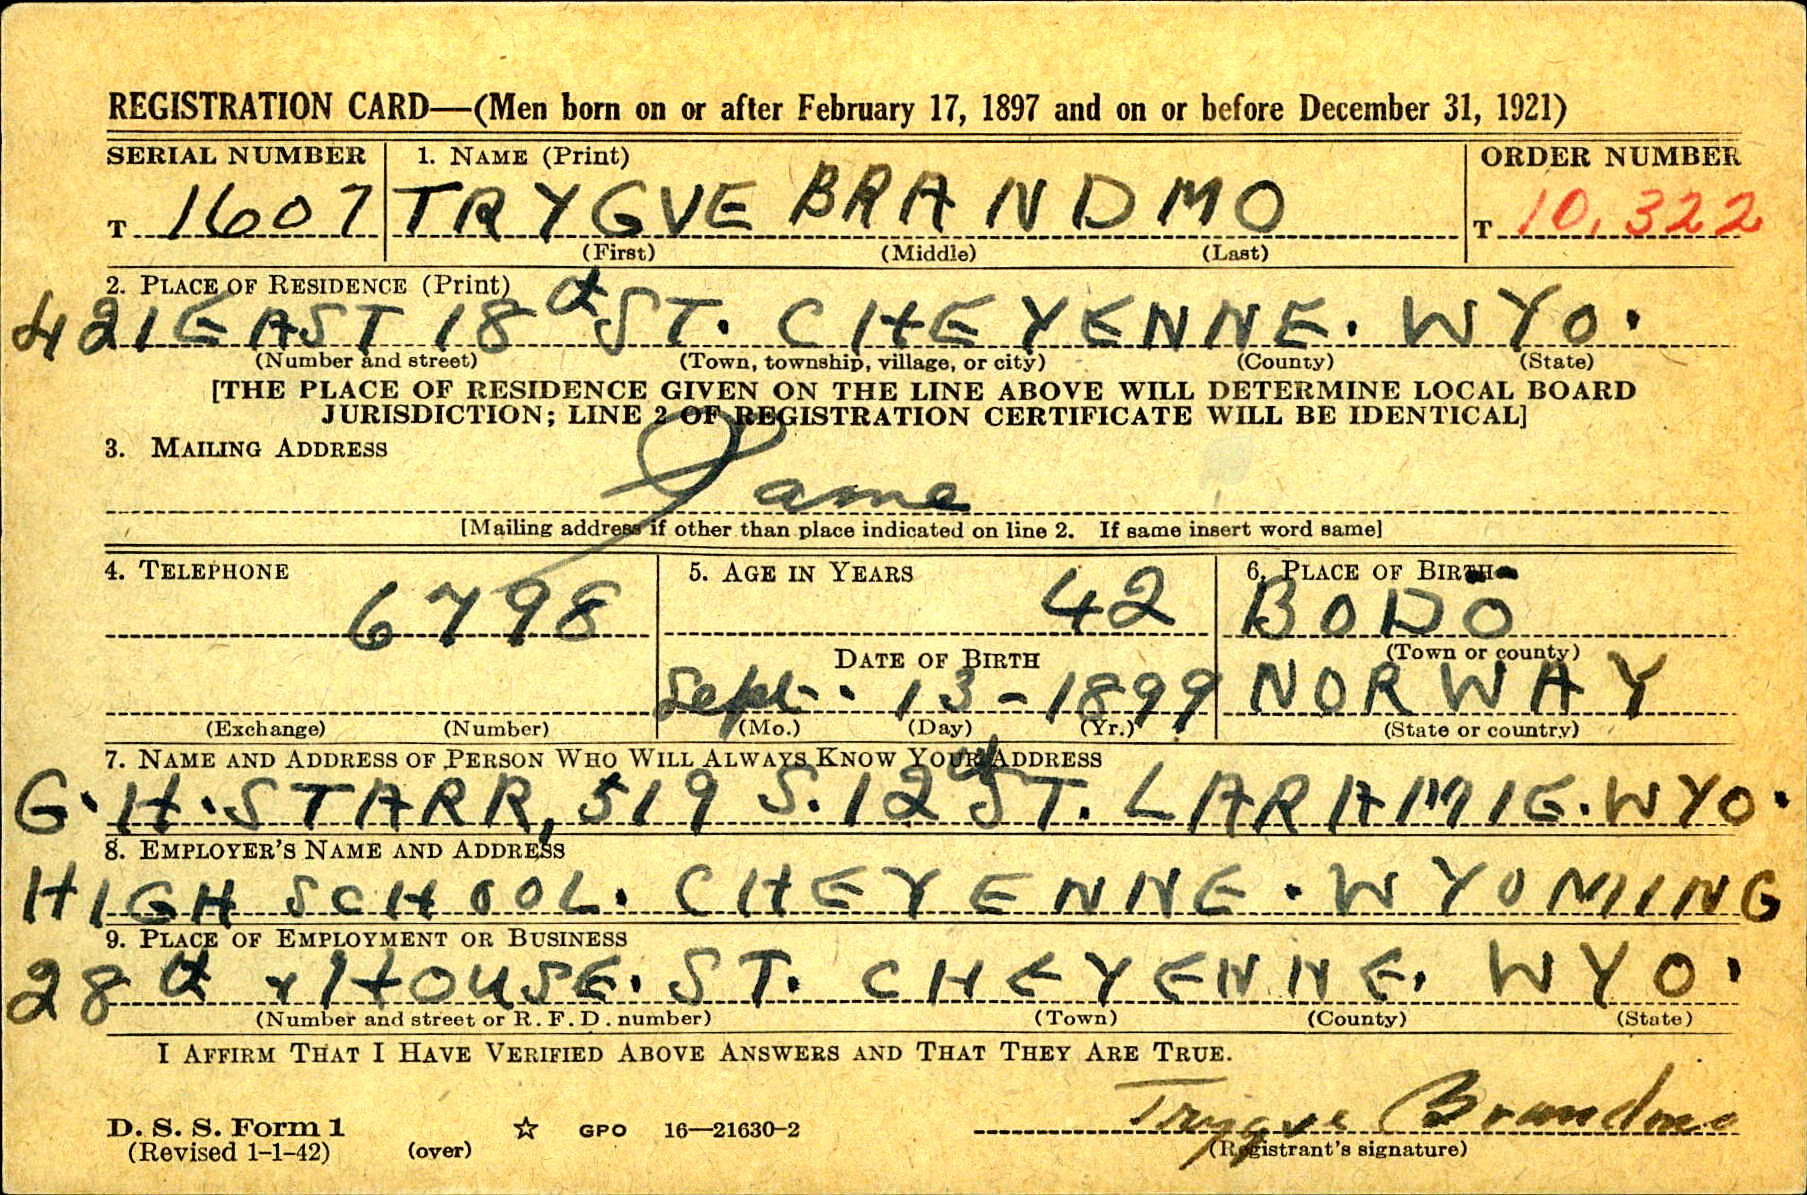 REGISTRATION CARD—(Men born on or after February 17, 1897 and on or before December 31, 1921)
SERIAL NUMBER 1. NAME (Print) ORDER NUMBER
T 1607 TRYGVE BRANDMO T 10,322
(First) (Middle) (Last)
2. PLACE OF RESIDENCE (Print)
421 EAST 18th ST. CHEYENNE. WYO.
(Number and street) (Town, township, village, or city) (County) (State)
[THE PLACE OF RESIDENCE GIVEN ON THE LINE ABOVE WILL DETERMINE LOCAL BOARD
JURISDICTION; LINE 2 OF REGISTRATION CERTIFICATE WILL BE IDENTICAL]
3. MAILING ADDRESS
Same
[Mailing address if other than place indicated on line 2. If same insert word same]
4. TELEPHONE 5. AGE IN YEARS 6. PLACE OF BIRTH
6798 42 BODO
DATE OF BIRTH (Town or county)
Sept. 13-1899 NORWAY
(Exchange) (Number) (Mo.) (Day) (Yr.) (State or country)
7. NAME AND ADDRESS OF PERSON WHO WILL ALWAYS KNOW YOUR ADDRESS
G.H. STARR, 519 S. 12th ST. LARAMIE. WYO.
8. EMPLOYER'S NAME AND ADDRESS
HIGH SCHOOL. CHEYENNE. WYOMING
9. PLACE OF EMPLOYMENT OR BUSINESS
28th + HOUSE. ST. CHEYENNE. WYO.
(Number and street or R. F. D. number) (Town) (County) (State)
I AFFIRM THAT I HAVE VERIFIED ABOVE ANSWERS AND THAT THEY ARE TRUE.
Trygve Brandmo
D. S. S. Form 1 ☆ GPO 16—21630-2
(Revised 1-1-42) (over) (Registrant's signature)